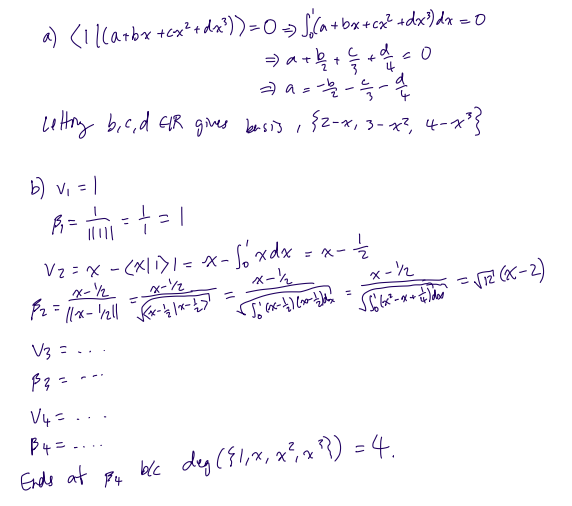 a) ⟨1|(a+bx+cx²+dx³)⟩=0 ⇒ ∫₀¹(a+bx+cx²+dx³)dx = 0
⇒ a + b/2 + c/3 + d/4 = 0
⇒ a = -b/2 - c/3 - d/4
Letting b,c,d ∈ℝ gives basis, {2-x, 3-x², 4-x³}
b) v₁ = 1
β₁ = 1/||1|| = 1/1 = 1
v₂ = x - ⟨x|1⟩1 = x - ∫₀¹ x dx = x - 1/2
β₂ = (x-1/2)/||x-1/2|| = (x-1/2)/√⟨x-1/2|x-1/2⟩ = (x-1/2)/√(∫₀¹(x-1/2)(x-1/2)dx) = (x-1/2)/√(∫₀¹(x²-x+1/4)dx) = √12 (x-2)
v₃ = ...
β₃ = ...
v₄ = ...
β₄ = ....
Ends at β₄ b/c deg({1,x,x²,x³}) = 4.